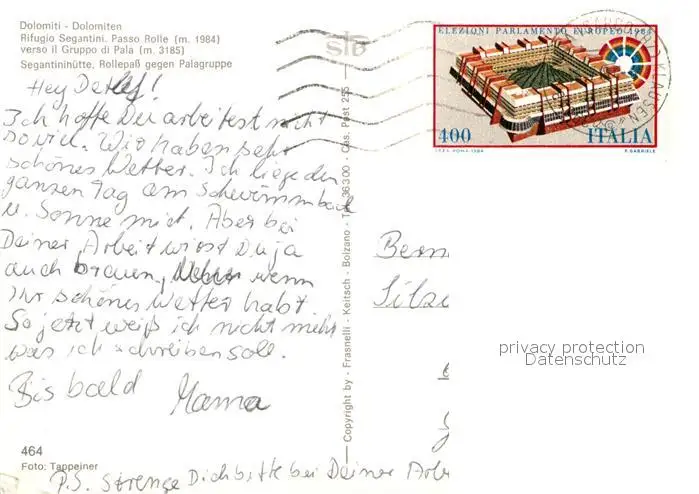 Dolomiti - Dolomiten
Rifugio Segantini. Passo Rolle (m. 1984)
verso il Gruppo di Pala (m. 3185)
Segantinihütte, Rollepaß gegen Palagruppe
Hey Detlef!
Ich hoffe Du arbeitest nicht
so viel. Wir haben sehr
schönes Wetter. Ich liege den
ganzen Tag am Schwimmbad
u. Sonne mich. Aber bei
Deiner Arbeit wirst Du ja
auch braun, wenn
Ihr schönes Wetter habt.
So jetzt weiß ich nicht mehr
was ich schreiben soll.
Bis bald Mama
464
Foto: Tappeiner
P.S. Strenge Dich bitte bei Deiner Arbe
Copyright by - Frasnelli - Keitsch - Bolzano - Tel. 36300 - Cas. Post 255
ELEZIONI PARLAMENTO EUROPEO 1984
400 ITALIA
I.P.Z.S. ROMA 1984 P. GABRIELE
KLAUSEN
Bern
privacy protection
Datenschutz